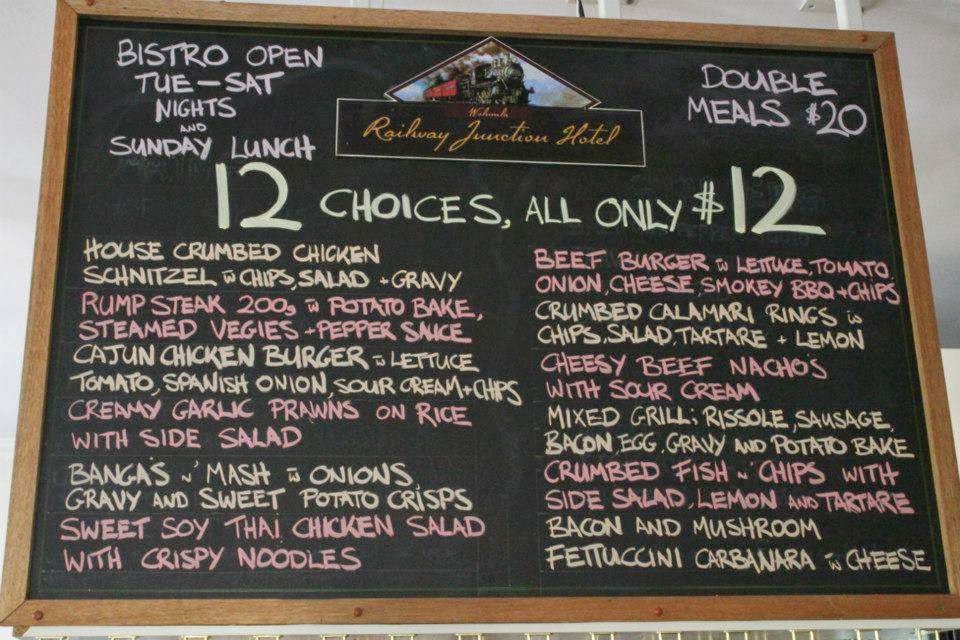 BISTRO OPEN
TUE-SAT
NIGHTS
AND
SUNDAY LUNCH
Railway Junction Hotel
DOUBLE
MEALS $20
12 CHOICES, ALL ONLY $12
HOUSE CRUMBED CHICKEN
SCHNITZEL w CHIPS, SALAD + GRAVY
RUMP STEAK 200g w POTATO BAKE,
STEAMED VEGIES + PEPPER SAUCE
CAJUN CHICKEN BURGER w LETTUCE
TOMATO, SPANISH ONION, SOUR CREAM + CHIPS
CREAMY GARLIC PRAWNS ON RICE
WITH SIDE SALAD
BANGA'S N' MASH w ONIONS,
GRAVY AND SWEET POTATO CRISPS
SWEET SOY THAI CHICKEN SALAD
WITH CRISPY NOODLES
BEEF BURGER w LETTUCE, TOMATO,
ONION, CHEESE, SMOKEY BBQ + CHIPS
CRUMBED CALAMARI RINGS w
CHIPS, SALAD, TARTARE + LEMON
CHEESY BEEF NACHO'S
WITH SOUR CREAM
MIXED GRILL; RISSOLE, SAUSAGE,
BACON, EGG, GRAVY AND POTATO BAKE
CRUMBED FISH N' CHIPS WITH
SIDE SALAD, LEMON AND TARTARE
BACON AND MUSHROOM
FETTUCCINI CARBANARA w CHEESE